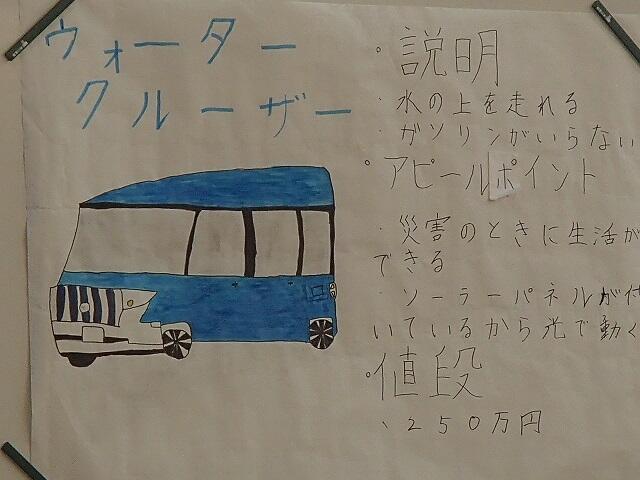 ウォーター
クルーザー
・説明
・水の上を走れる
・ガソリンがいらない
・アピールポイント
・災害のときに生活が
できる
・ソーラーパネルが付
いているから光で動く
・値段
、250万円